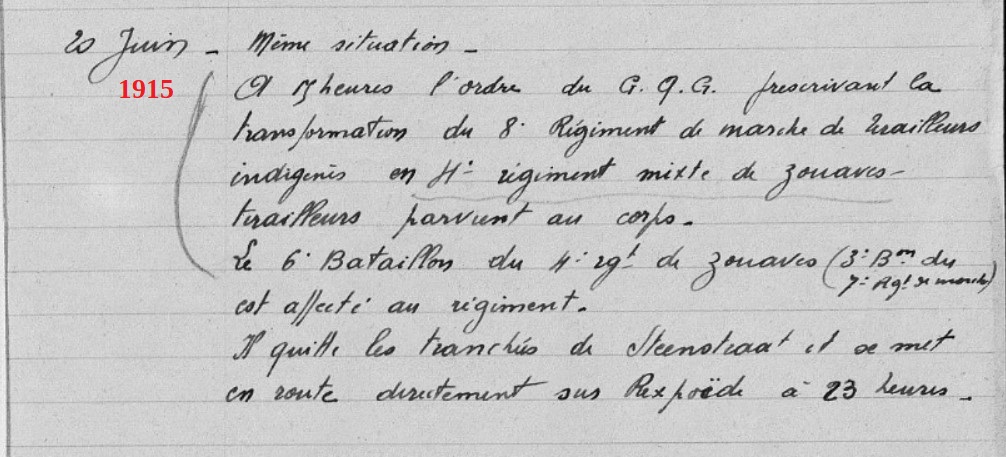 20 Juin - Même situation -
1915
A 17 heures l'ordre du G.Q.G. prescrivant la
transformation du 8e Régiment de marche de tirailleurs
indigènes en 4e régiment mixte de zouaves-
tirailleurs parvient au corps.
Le 6e Bataillon du 4e rgt de zouaves (3e Bon du
7e Rgt de marche)
est affecté au régiment.
Il quitte les tranchées de Steenstraat et se met
en route directement sur Rexpoëde à 23 heures.